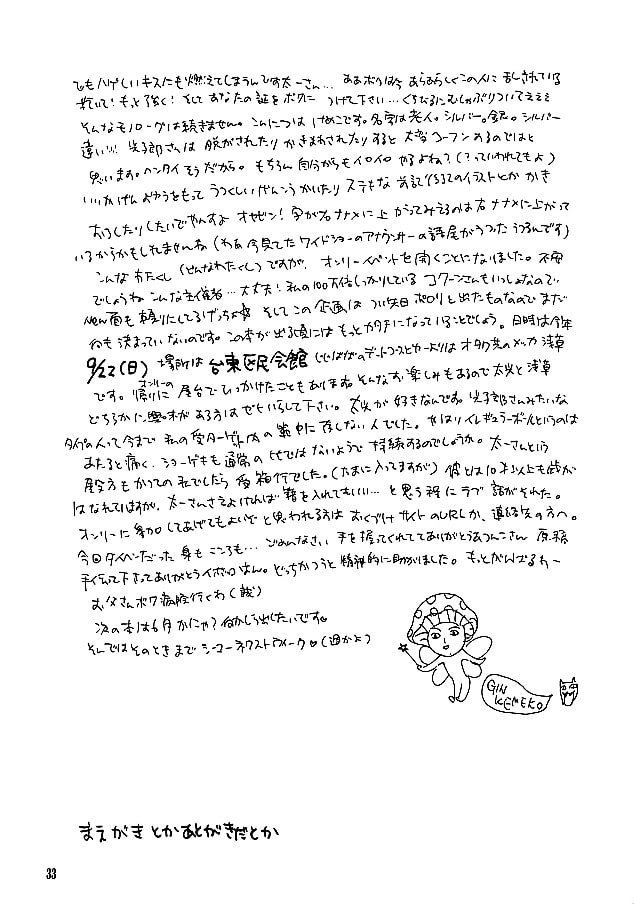 でもハゲしいキスにも燃えてしまうんです太一さん…ああボクは今あらあらしくこの人に乱されている
もっと強く！そしてあなたの証をボクに つけて下さい…くちびるにむしゃぶりついてえええ
そんなモノローグは続きません。こんにちは けめこです。名字は老人。シルバー。銀。シルバー
違い!!! 光子郎さんは 脱がされたり かきまわされたりすると 大変コーフンするのではと
思います。ヘンタイそうだから。もちろん自分からもイロイロ やるよね？(？っていわれてもよ)
いいかげん よゆうをもって うつくしいげんこうかいたり ステキな のイラストとか かき
おろしたりしたいでやんすよ オヤビン！字が右ナナメに上がってみえるのは右ナナメに上がって
いるからかもしれませんね(わあ今見てたワイドショーのアナウンサーの語尾がうつった うつるんです)
こんなわたくし(どんなわたくし)ですが、オンリーイベントを開くことになりました。不安
でしょうねこんな主催者…大丈夫！私の100万倍しっかりしている コクーンさんもいっしょなので
New面も頼りにしてるげっちょ そしてこの企画は つい先日ポロリと出たものなので まだ
何も決まっていないのです。この本が出る頃には もっとカタチになっていることでしょう。日時は今年
9/22(日) 場所は 台東区民会館 オタク共のメッカ 浅草
です。オンリーの帰りに屋台でひっかけたこともあります そんなお楽しみもあるので 太光と浅草
どちらかに興味がある方は ぜひいらして下さい。太光が好きなんです。光子郎さんみたいな
タイプの人って今まで 私の受ゾーン内の 中に存しない人でした。やはりイレギュラーボールというのは
あたると痛く、ショーゲキも通常の比ではないようで 持続するのでしょうか。太一さんという
殿方もかつての私でしたら 受 行でした。(たまに入ってますが) 彼とは10才以上も歳が
はなれていますが、太一さんさえよければ 籍を入れてもいい…と思う程にラブ 話がそれた。
オンリーに参加してあげてもよいぞと思われる方は おくづけ サイトのURLか、連絡先の方へ。
今回タイヘンだった 身もこころも… ごめんなさい 手を握ってくれててありがとうあつこさん 原稿
手伝って下さってありがとうイボはん。どっちかつうと精神的に助かりました。もっとがんばるわー
お父さんボク病院行くわ(謎)
次の本は6月かにゃ？何かしら出したいです。
そんではそのときまで シーユーネクストウィーク♡(週かよ)
GIN
KEMEKO
まえがきとかあとがきだとか
33